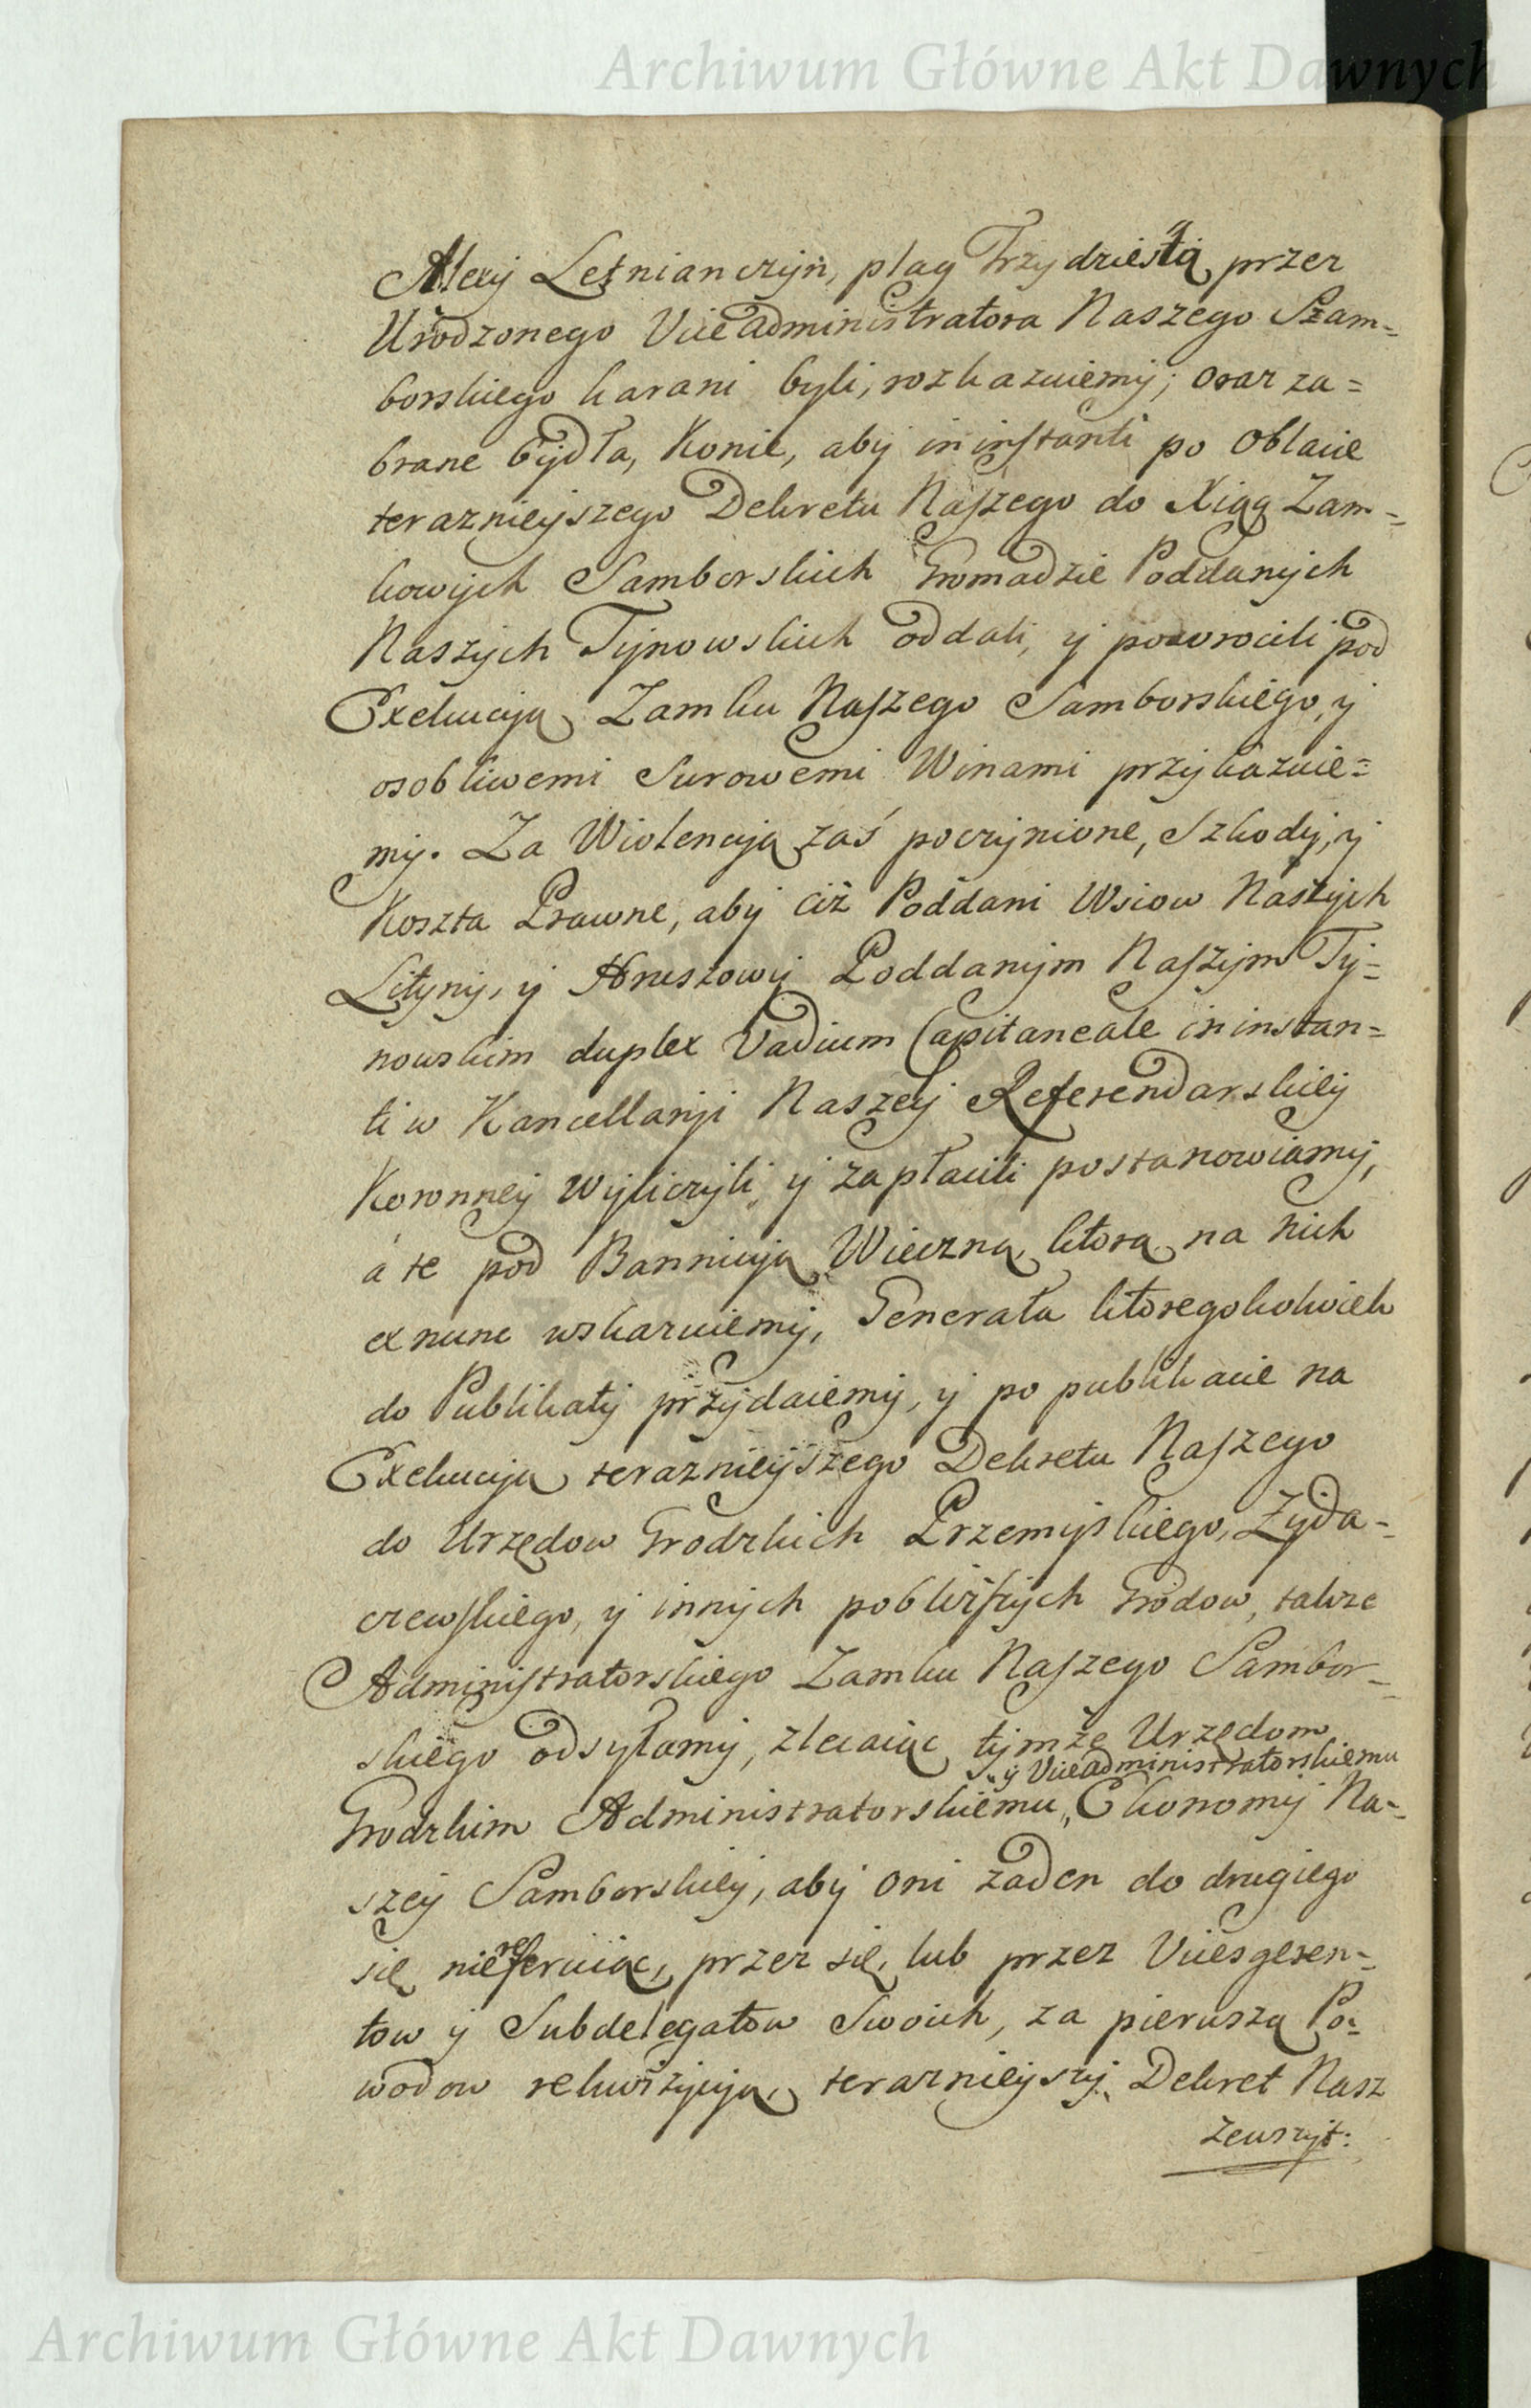 Archiwum Główne Akt Dawnych
Alexy Letnianczyn, plag Trzydziestą przez
Urodzonego Viceadministratora Naszego Szam=
borskiego karani byli, rozkazuiemy; oraz za=
brane bydła, Konie, aby in instanti po oblacie
terazniejszego Dekretu Naszego do Xiąg Zam=
kowych Samborskich Gromadzie Poddanych
Naszych Tynowskich oddali, y powrocili pod
Exekucyą Zamku Naszego Samborskiego, y
osobliwemi Surowemi Winami przykazuie=
my. Za Wiolencyą zaś poczynione, Szkody, y
Koszta Prawne, aby ciż Poddani Wsiow Naszych
Lityny, y Hruszowy Poddanym Naszym Ty=
nowskim duplex Vadium Capitaneale in instan=
ti w Kancellaryi Naszey Referendarskiey
Koronney Wyliczyli y zapłacili postanowiamy,
á te pod Bannicyą Wieczną, ktorą na nich
ex nunc wskazuiemy, Generała ktoregokolwiek
do Publikaty przydaiemy, y po publikacie na
Exekucyą terazniejszego Dekretu Naszego
do Urzędow Grodzkich Przemyskiego, Żyda=
czewskiego, y innych pobliższych Grodow, także
Administratorskiego Zamku Naszego Sambor=
skiego odsyłamy, zlecaiąc tymże Urzędom
y Viceadministratorskiemu
Grodzkim Administratorskiemu, Ekonomij Na=
szey Samborskiey, aby oni żaden do drugiego
się niereferuiąc, przez się, lub przez Vicesgeren=
tow y Subdelegatow Swoich, za pierwszą Po=
wodow rekwizycyą, terazniejszy Dekret Nasz
zewszyt:
Archiwum Główne Akt Dawnych